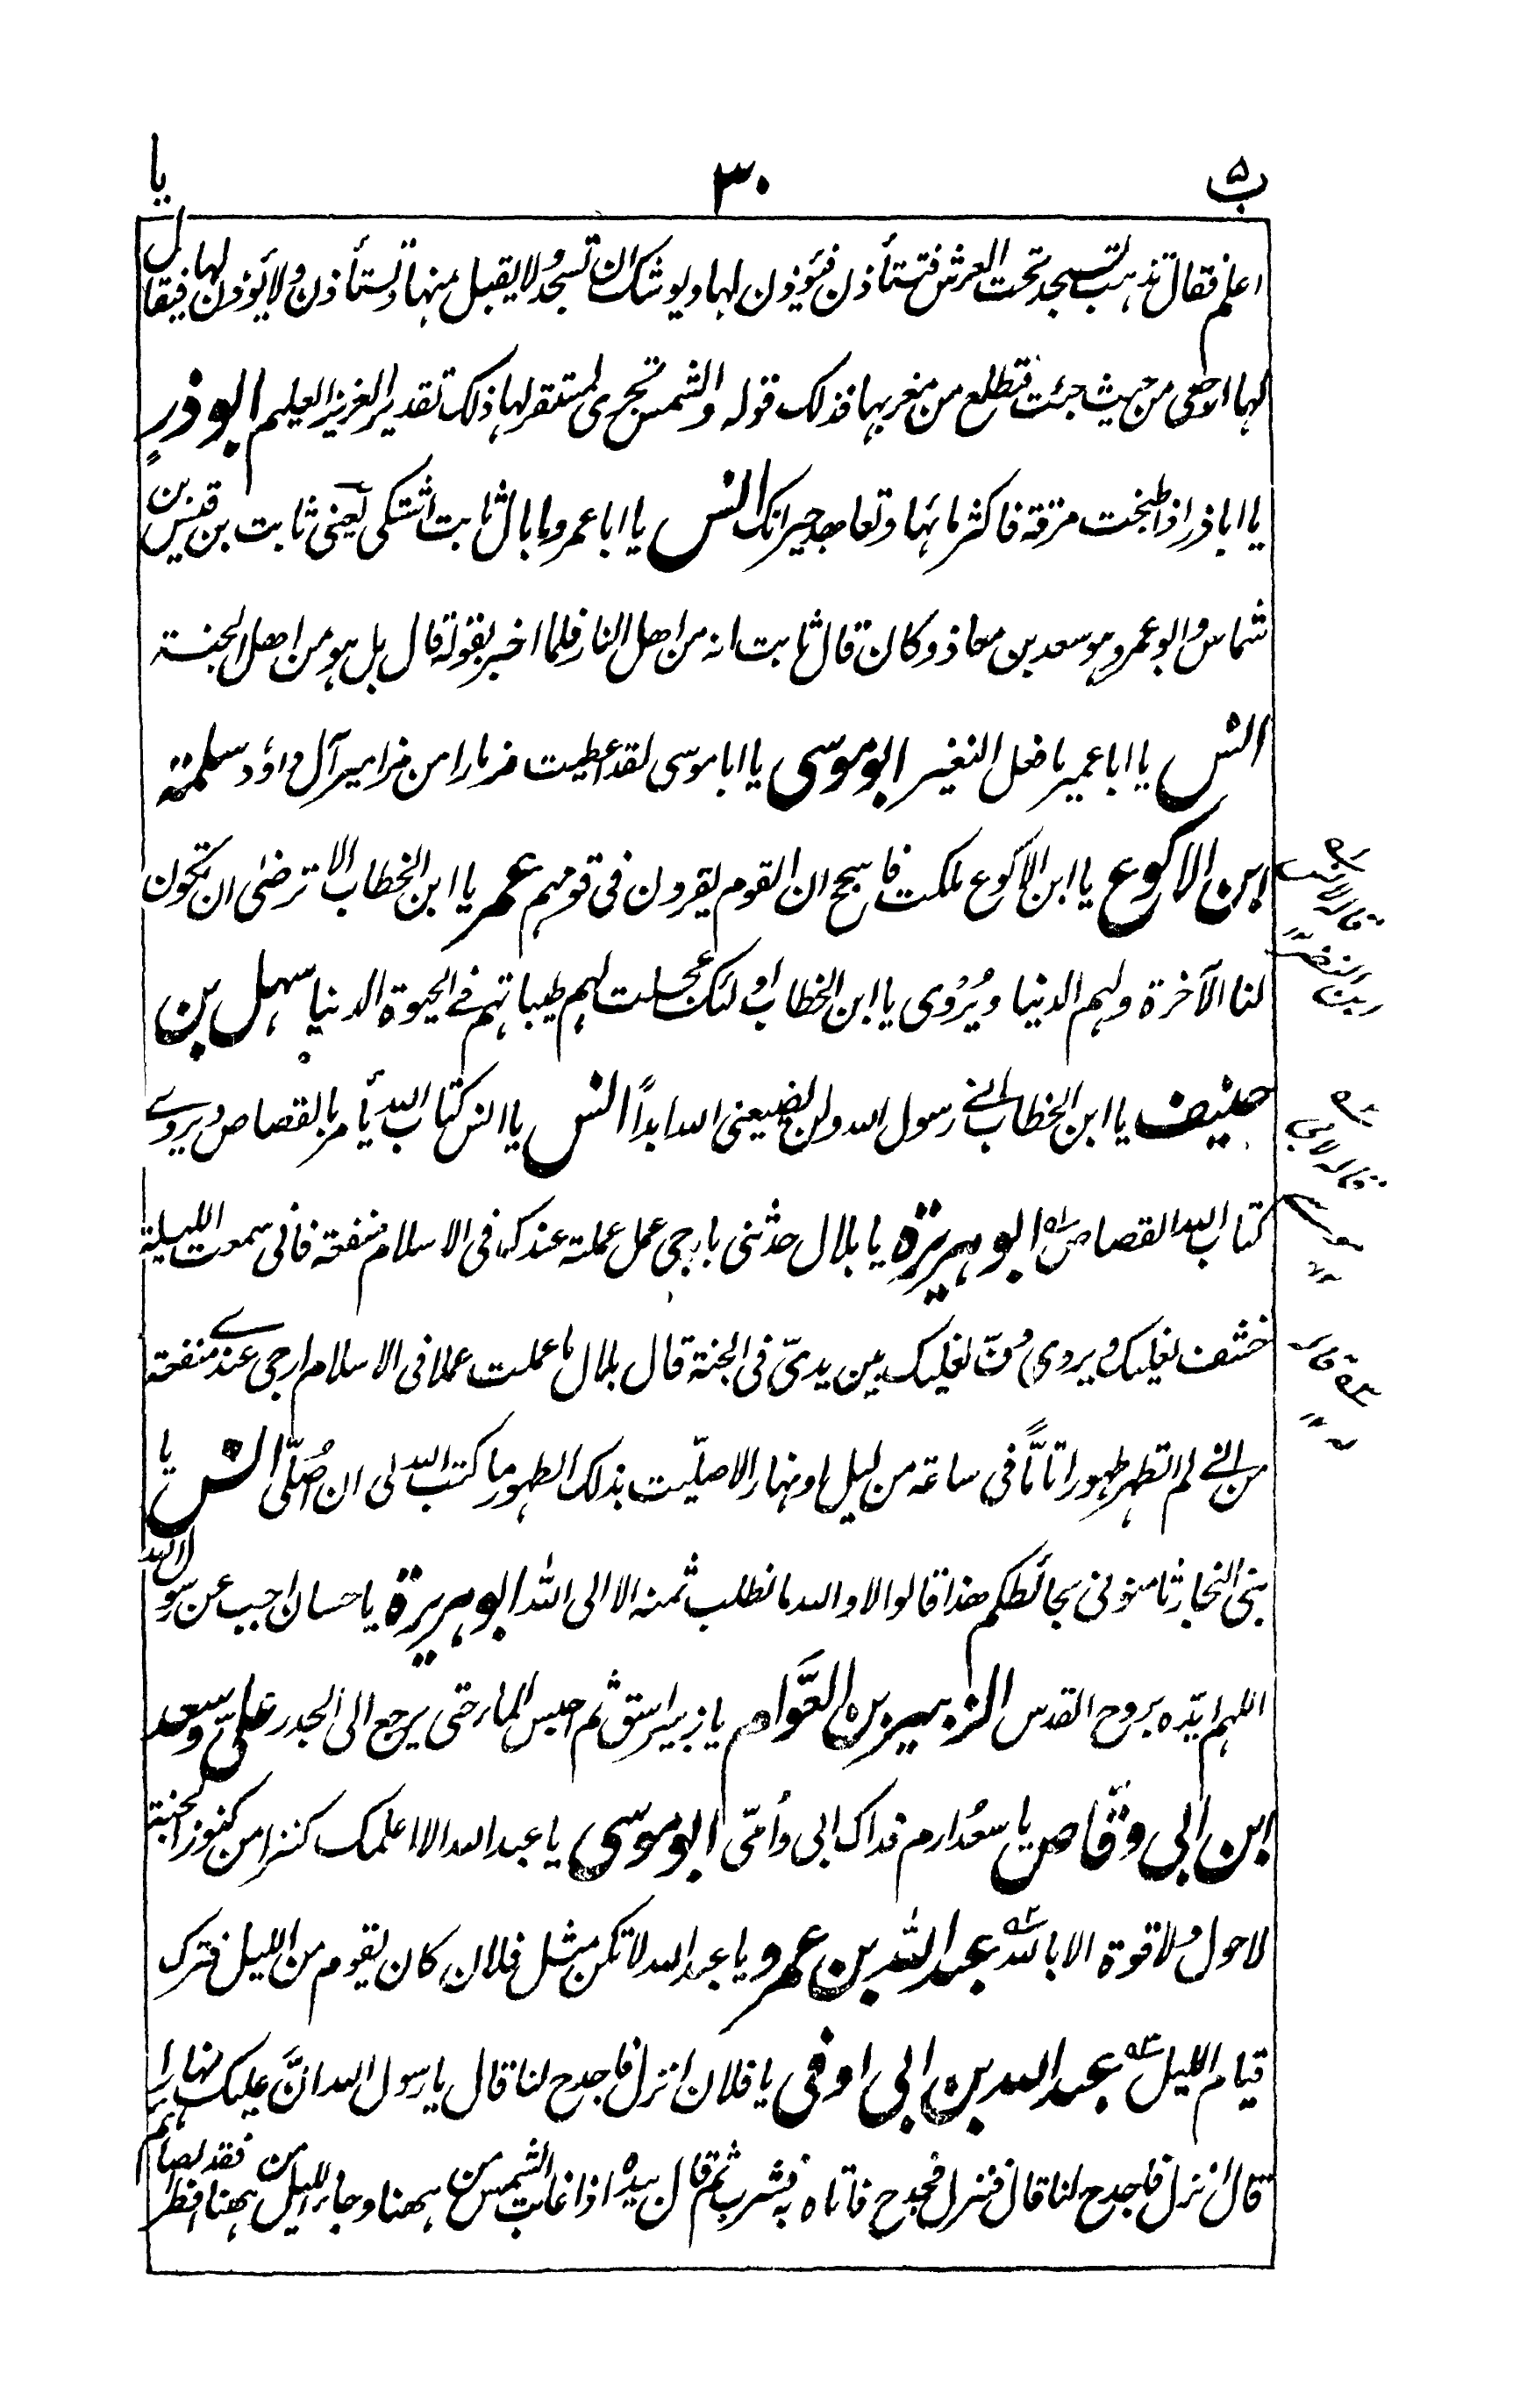 ب ۵ ۳۰ يا
اعلم فقال تذهب تسجد تحت العرش فتستأذن فيؤذن لها ويوشك ان تسجد ولا يقبل منها وتستأذن ولا يؤذن لها فيقال
لها ارجعى من حيث جئت فتطلع من مغربها فذلك قوله والشمس تجرى لمستقر لها ذلك تقدير العزيز العليم ابو ذرٍ
يا اباذر اذا طبخت مرقة فاكثر مائها وتعاهد جيرانك انس يا ابا عمرو ما بال ثابت اشتكى يعنى ثابت بن قيس بن
شماس وابو عمرو هو سعد بن معاذ وكان قال ثابت انه من اهل النار فلما اخبر بقوله قال بل هو من اهل الجنة
انس يا ابا عمير ما فعل النغير ابو موسى يا ابا موسى لقد اعطيت مزمارا من مزامير آل داؤد سلمة
ابن الاكوع يا ابن الاكوع ملكت فاسجح ان القوم يقرون فى قومهم عمر يا ابن الخطاب الا ترضى ان تكون
لنا الآخرة ولهم الدنيا ويُرْوى يا ابن الخطاب اولئك عجلت لهم طيباتهم فے الحيوة الدنيا سهل بن
حنيف يا ابن الخطاب انے رسول الله ولن يضيعنى الله ابداً انس يا انس كتاب الله يأمر بالقصاص ويروے
كتاب الله القصاص ابو هريرة يا بلال حدثنى بارجى عمل عملته عندك فى الاسلام منفعة فانى سمعت الليلة
خشف نعليك ويروى دُفّ نعليك بين يدىّ فى الجنة قال بلال ما عملت عملا فى الاسلام ارجى عندے منفعة
من انے لم اتطهر طهورا تامّاً فى ساعة من ليل او نهار الا صلّيت بذلك الطهور ما كتب الله لى ان اُصلّى انس يا
بنى النجار ثامنونى بحائطكم هذا قالوا لا والله ما نطلب ثمنه الا الى الله ابو هريرة يا حسان اجب عن رسول الله
اللهم ايّده بروح القدس الزبير بن العوّام يا زبير اسق ثم احبس الماء حتى يرجع الى الجدر علىّ وسعد
ابن ابى وقّاص يا سعدُ ارم فداك ابى واُمّى ابو موسى يا عبد الله الا اعلمك كنزا من كنوز الجنة
لا حول ولا قوة الا بالله عبد الله بن عمرو يا عبد الله لا تكن مثل فلان كان يقوم من الليل فترك
قيام الليل عبد الله بن ابى اوفى يا فلان انزل فاجدح لنا قال يا رسول الله انّ عليك نهارا
قال انزل فاجدح لنا قال فنزل فجدح فاتاه به فشرب ثم قال بيده اذا غابت الشمس من ههنا وجاء الليل من ههنا فقد افطر الصائم